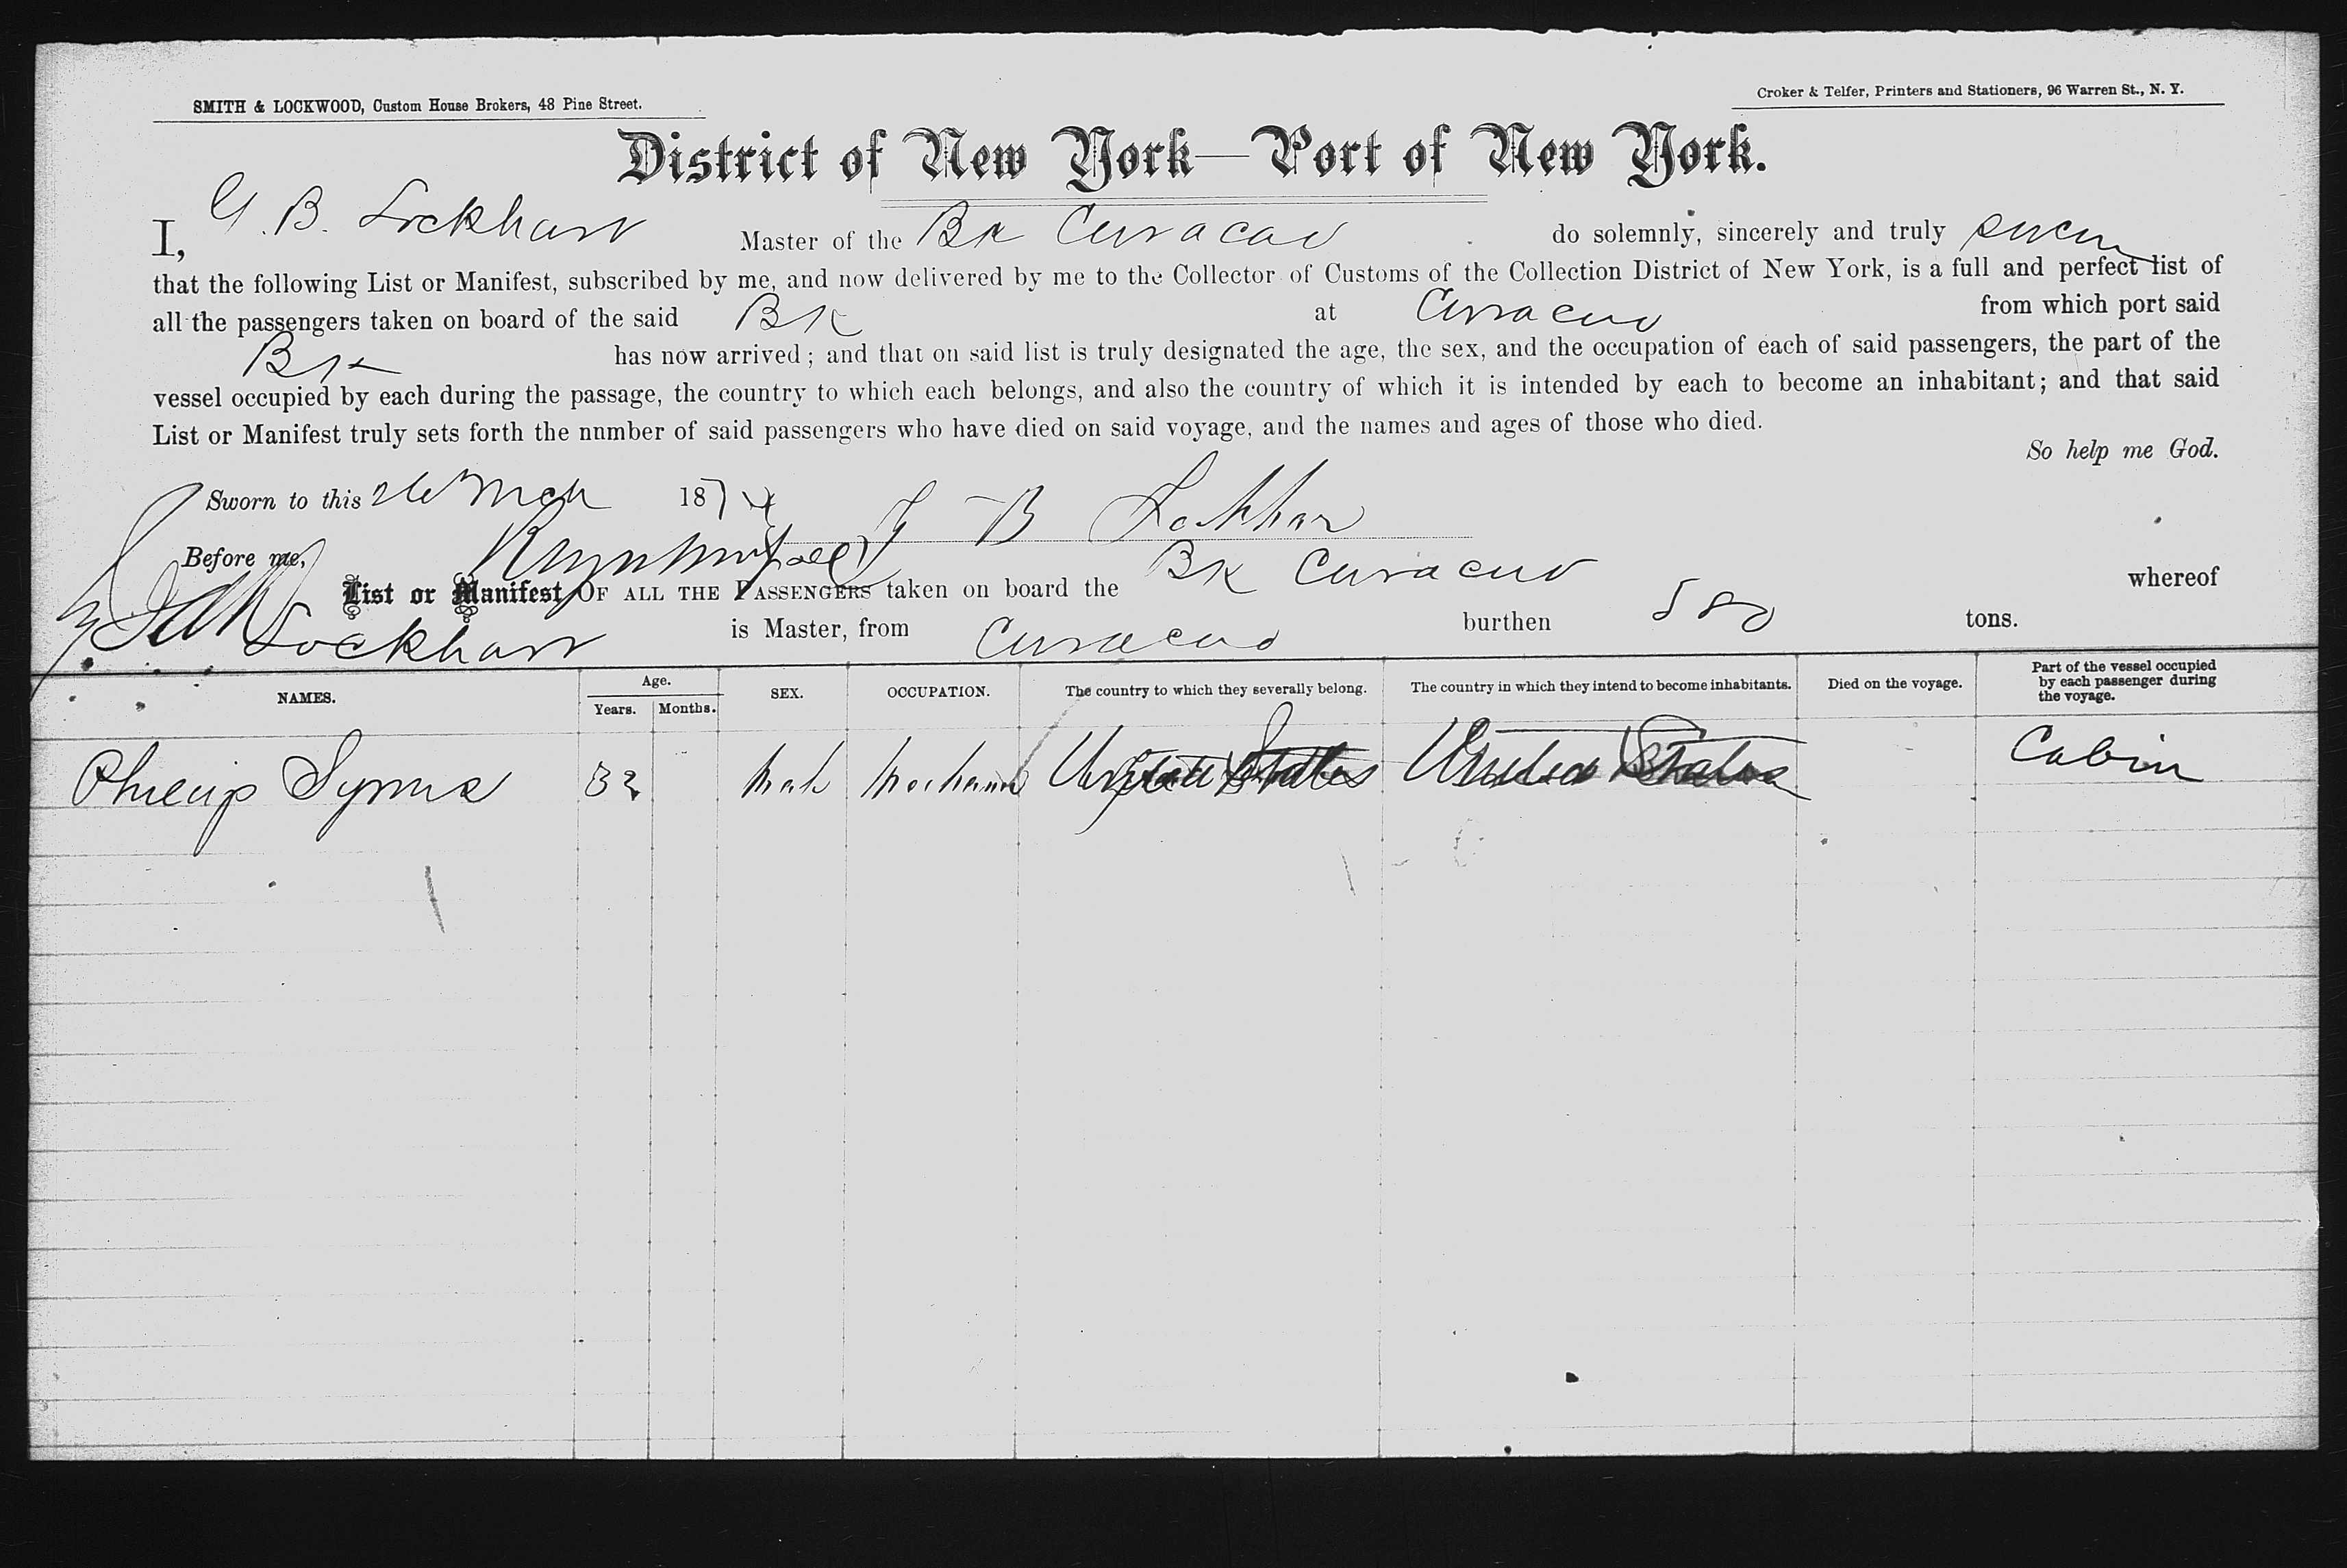 SMITH & LOCKWOOD, Custom House Brokers, 48 Pine Street.
Croker & Telfer, Printers and Stationers, 96 Warren St., N. Y.
District of New York—Port of New York.
I, G. B. Lockhart Master of the Bk Curacao do solemnly, sincerely and truly swear
that the following List or Manifest, subscribed by me, and now delivered by me to the Collector of Customs of the Collection District of New York, is a full and perfect list of
all the passengers taken on board of the said Bk at Curacao from which port said
Bk has now arrived; and that on said list is truly designated the age, the sex, and the occupation of each of said passengers, the part of the
vessel occupied by each during the passage, the country to which each belongs, and also the country of which it is intended by each to become an inhabitant; and that said
List or Manifest truly sets forth the nnmber of said passengers who have died on said voyage, and the names and ages of those who died.
So help me God.
Sworn to this Mch 187 G B Lockhar
Before me,
List or Manifest OF ALL THE PASSENGERS taken on board the Bk Curacao whereof
Lockhart is Master, from Curacao burthen 580 tons.
NAMES. Age. Years. Months. SEX. OCCUPATION. The country to which they severally belong. The country in which they intend to become inhabitants. Died on the voyage. Part of the vessel occupied by each passenger during the voyage.
Philip Syms 32 Male Mechanic United States United States Cabin